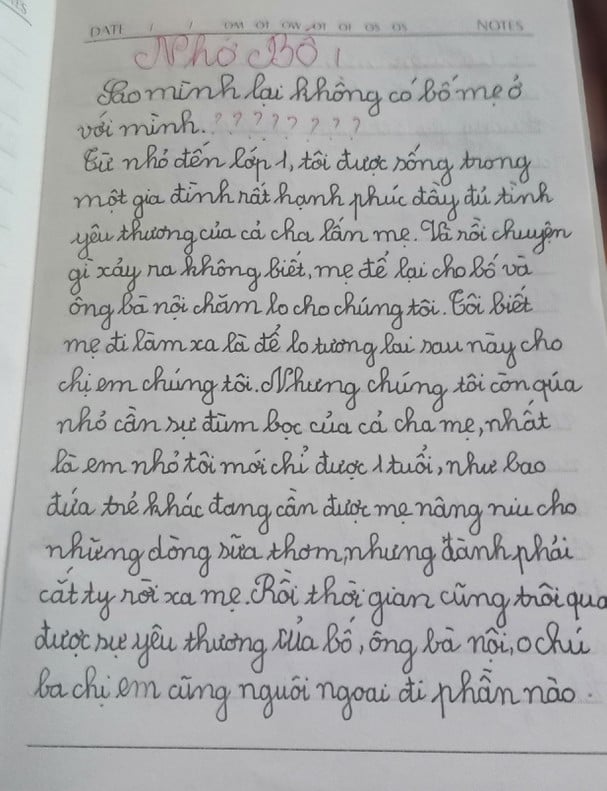 DATE / /
NOTES
Nhớ Bố!
Sao mình lại không có bố mẹ ở
với mình. ? ? ? ? ? ? ? ?
Từ nhỏ đến lớp 1, tôi được sống trong
một gia đình rất hạnh phúc đầy đủ tình
yêu thương của cả cha lẫn mẹ. Và rồi chuyện
gì xảy ra không biết, mẹ để lại cho bố và
ông bà nội chăm lo cho chúng tôi. Tôi biết
mẹ đi làm xa là để lo tương lai sau này cho
chị em chúng tôi. Nhưng chúng tôi còn qúa
nhỏ cần sự đùm bọc của cả cha mẹ, nhất
là em nhỏ tôi mới chỉ được 1 tuổi, như bao
đứa trẻ khác đang cần được mẹ nâng niu cho
những dòng sữa thơm, nhưng đành phải
cắt ty rời xa mẹ. Rồi thời gian cũng trôi qua
được sự yêu thương của bố, ông bà nội, o chú
ba chị em cũng nguôi ngoai đi phần nào.